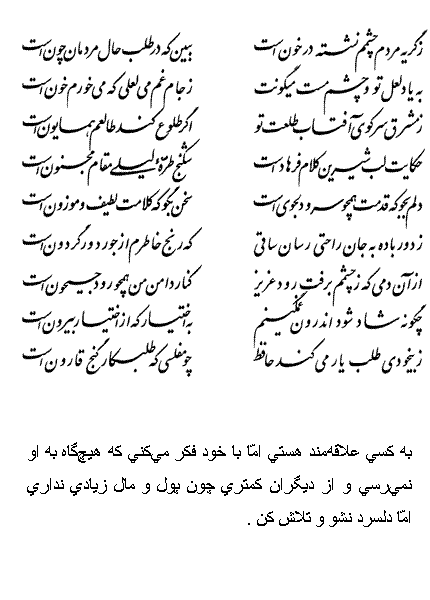 ز گریه مردم چشمم نشسته در خون است ببین که در طلب حال مردمان چون است
به یاد لعل تو و چشم مست میگونت ز جام غم می لعلی که می‌خورم خون است
ز مشرق سر کوی آفتاب طلعت تو اگر طلوع کند طالعم همایون است
حکایت لب شیرین کلام فرهاد است شکنج طره لیلی مقام مجنون است
دلم بجو که قدت همچو سرو دلجوی است سخن بگو که کلامت لطیف و موزون است
ز دور باده به جان راحتی رسان ساقی که رنج خاطرم از جور دور گردون است
از آن دمی که ز چشمم برفت رود عزیز کنار دامن من همچو رود جیحون است
چگونه شاد شود اندرون غمگینم به اختیار که از اختیار بیرون است
ز بیخودی طلب یار می کند حافظ چو مفلسی که طلبکار گنج قارون است
به كسي علاقه‌مند هستي امّا با خود فكر مي‌كني كه هيچ‌گاه به او
نمي‌رسي و از ديگران كمتري چون پول و مال زيادي نداري
امّا دلسرد نشو و تلاش كن .